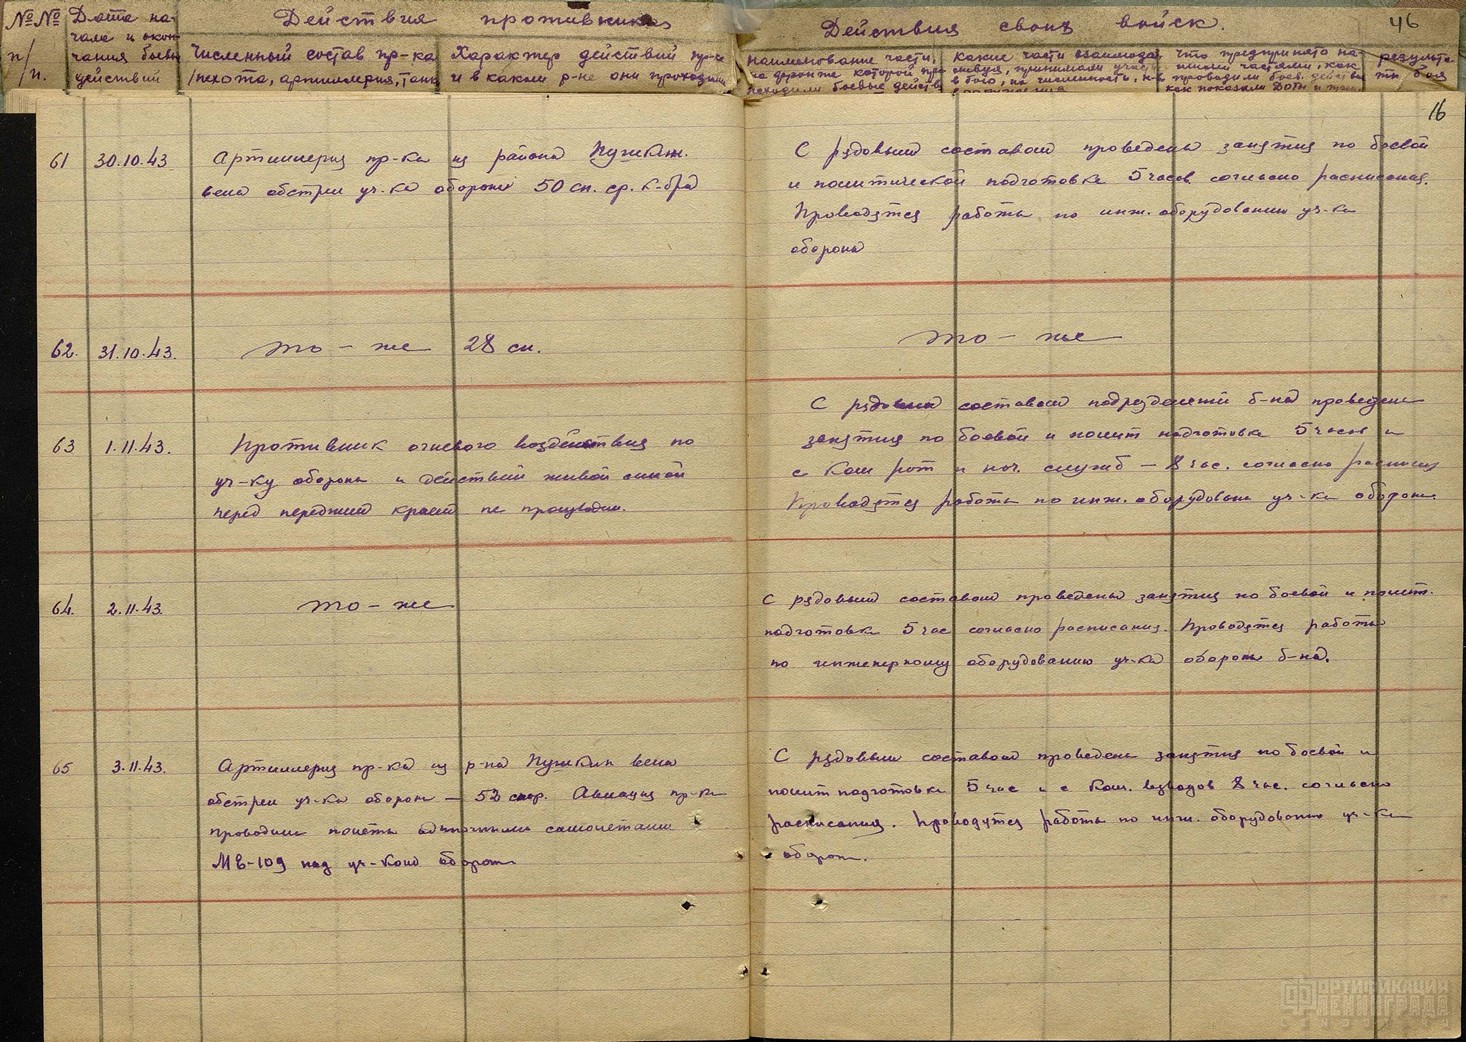 №№ п/п.
Дата начала и окончания боевых действий
Действия противника
Численный состав пр-ка
/пехота, артиллерия, танк
Характер действий пр-ка
и в каком р-не они проходили
Действия своих войск.
46
наименование части,
на фронте которой про
исходили боевые действ
какие части взаимодей
ствуя, принимали участ
в бою, их численность,
что предпринято на-
шими частями, как
проводили боев. действ
как показали ДОТы и
результа-
ты боя
16
61 30.10.43 Артиллерия пр-ка из района Пушкин.
вела обстрел уч-ка обороны 50 сн. ср. к-бра
С рядовым составом проведены занятия по боевой
и политической подготовке 5 часов согласно расписания.
Проводятся работы по инж. оборудованию уч-ка
обороны
62. 31.10.43. то - же 28 сн.
то - же
63 1.11.43. Противник огневого воздействия по
уч-ку обороны и действий живой силой
перед передним краем не производил.
С рядовым составом подразделений б-на проведены
занятия по боевой и полит подготовке 5 часов и
с Ком рот и нач. служб - 8 час. согласно расписан
Проводятся работы по инж. оборудован уч-ка обороны.
64. 2.11.43. то - же
С рядовым составом проведены занятия по боевой и полит.
подготовке 5 час согласно расписания. Проводятся работы
по инженерному оборудованию уч-ка обороны б-на.
65 3.11.43. Артиллерия пр-ка из р-на Пушкин вела
обстрел уч-ка обороны - 52 снар. Авиация пр-ка
проводила полёты одиночными самолетами
МЕ-109 над уч-ком обороны
С рядовым составом проведены занятия по боевой и
полит подготовке 5 час и с Ком. взводов 8 час. согласно
расписания. Проводятся работы по инж. оборудованию уч-ка
обороны.
ФОРТИФИКАЦИЯ
ЛЕНИНГРАДА